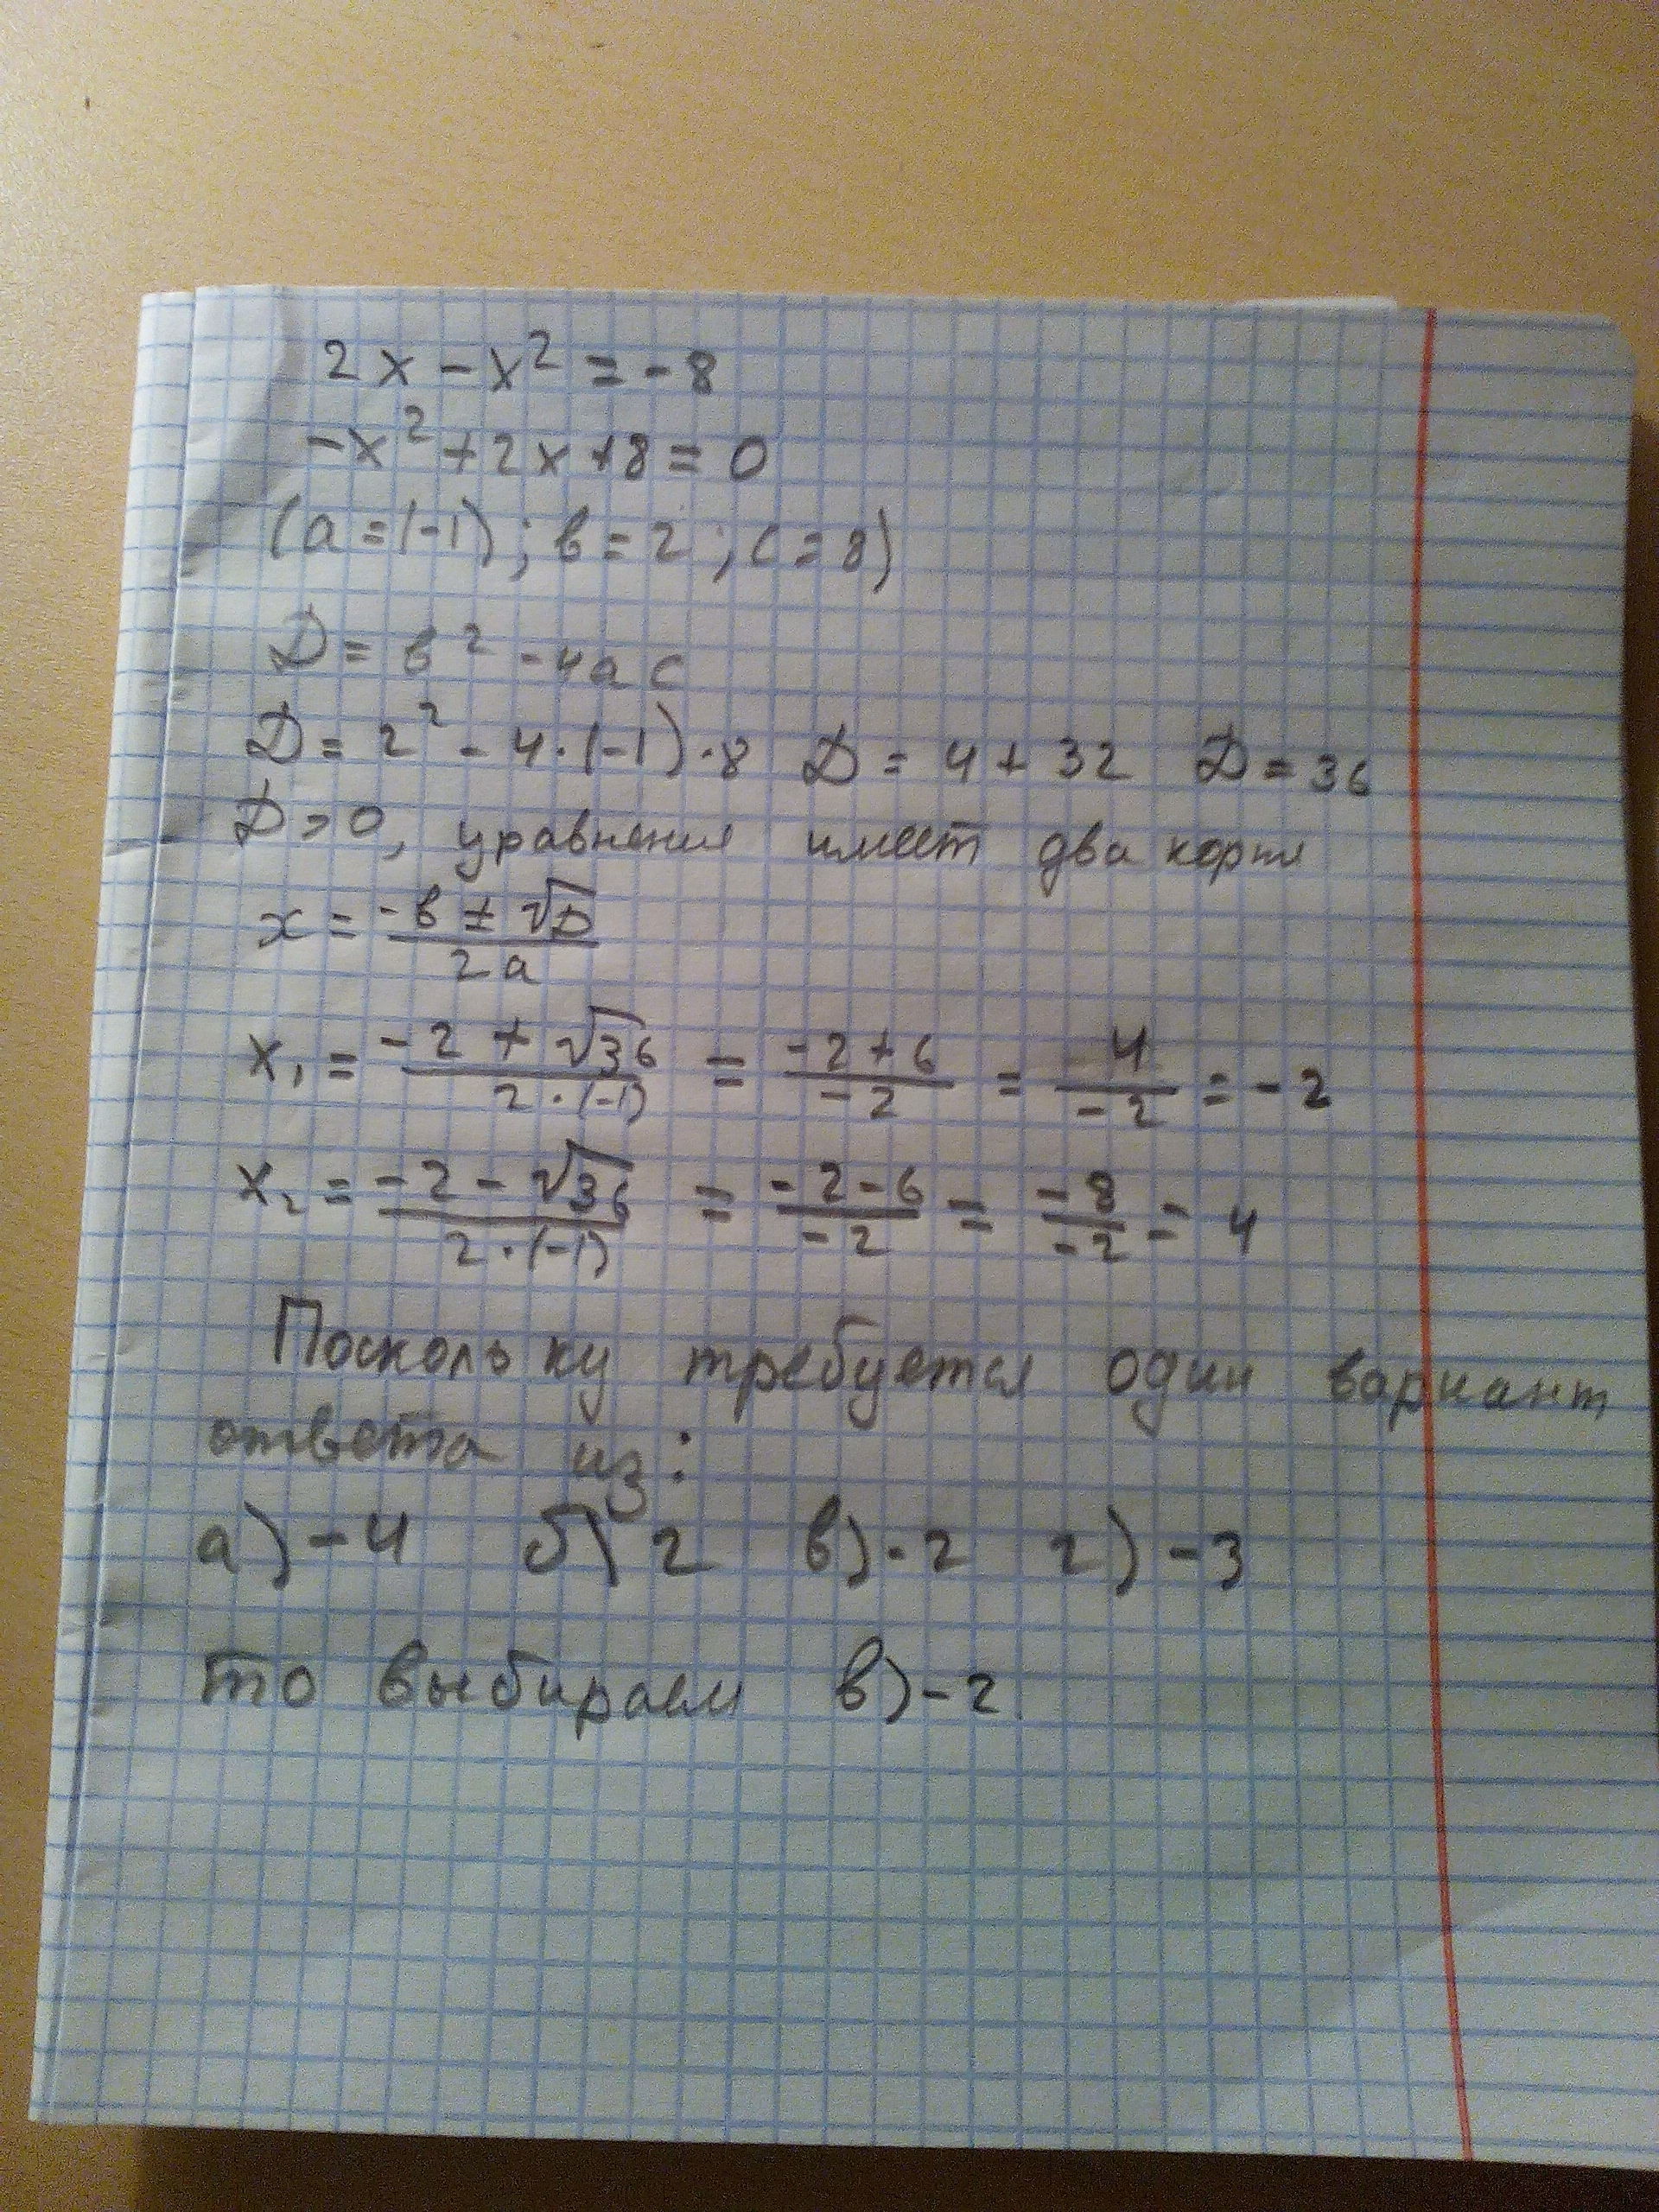 2x - x² = -8
-x² + 2x + 8 = 0
(a = (-1); в = 2; c = 8)
D = в² - 4ac
D = 2² - 4·(-1)·8 D = 4 + 32 D = 36
D > 0, уравнения имеет два корня
x = (-в ± √D)/2a
x₁ = (-2 + √36)/(2·(-1)) = (-2 + 6)/(-2) = 4/(-2) = -2
x₂ = (-2 - √36)/(2·(-1)) = (-2 - 6)/(-2) = (-8)/(-2) = 4
Поскольку требуется один вариант
ответа из:
а) -4 б) 2 в) -2 г) -3
то выбираем в) -2